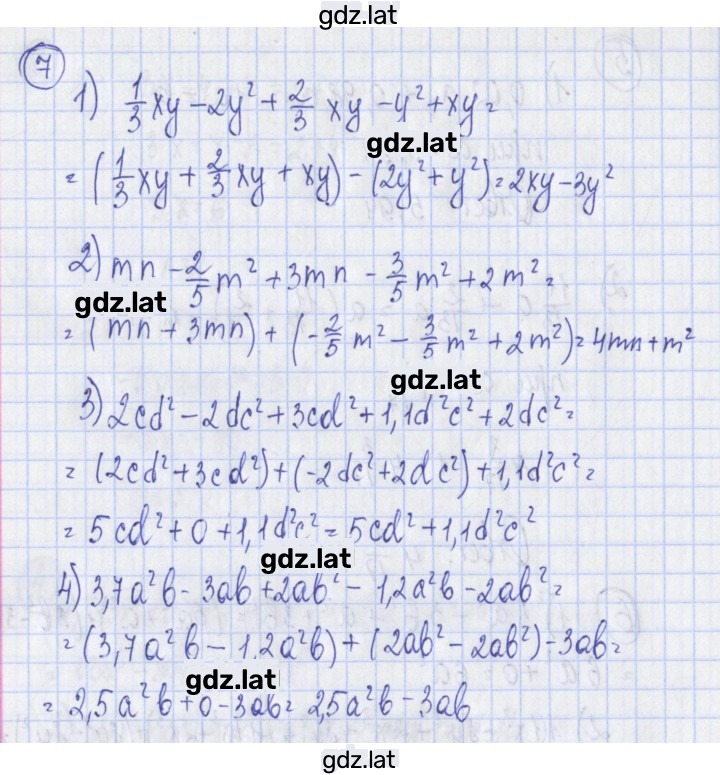 gdz.lat
7
1) 1/3 xy - 2y² + 2/3 xy - y² + xy =
gdz.lat
= (1/3 xy + 2/3 xy + xy) - (2y² + y²) = 2xy - 3y²
2) mn - 2/5 m² + 3mn - 3/5 m² + 2m² =
gdz.lat
= (mn + 3mn) + (-2/5 m² - 3/5 m² + 2m²) = 4mn + m²
gdz.lat
3) 2cd² - 2dc² + 3cd² + 1,1d²c² + 2dc² =
= (2cd² + 3cd²) + (-2dc² + 2dc²) + 1,1d²c² =
= 5cd² + 0 + 1,1d²c² = 5cd² + 1,1d²c²
gdz.lat
4) 3,7a²b - 3ab + 2ab² - 1,2a²b - 2ab² =
= (3,7a²b - 1,2a²b) + (2ab² - 2ab²) - 3ab =
gdz.lat
= 2,5a²b + 0 - 3ab = 2,5a²b - 3ab
gdz.lat